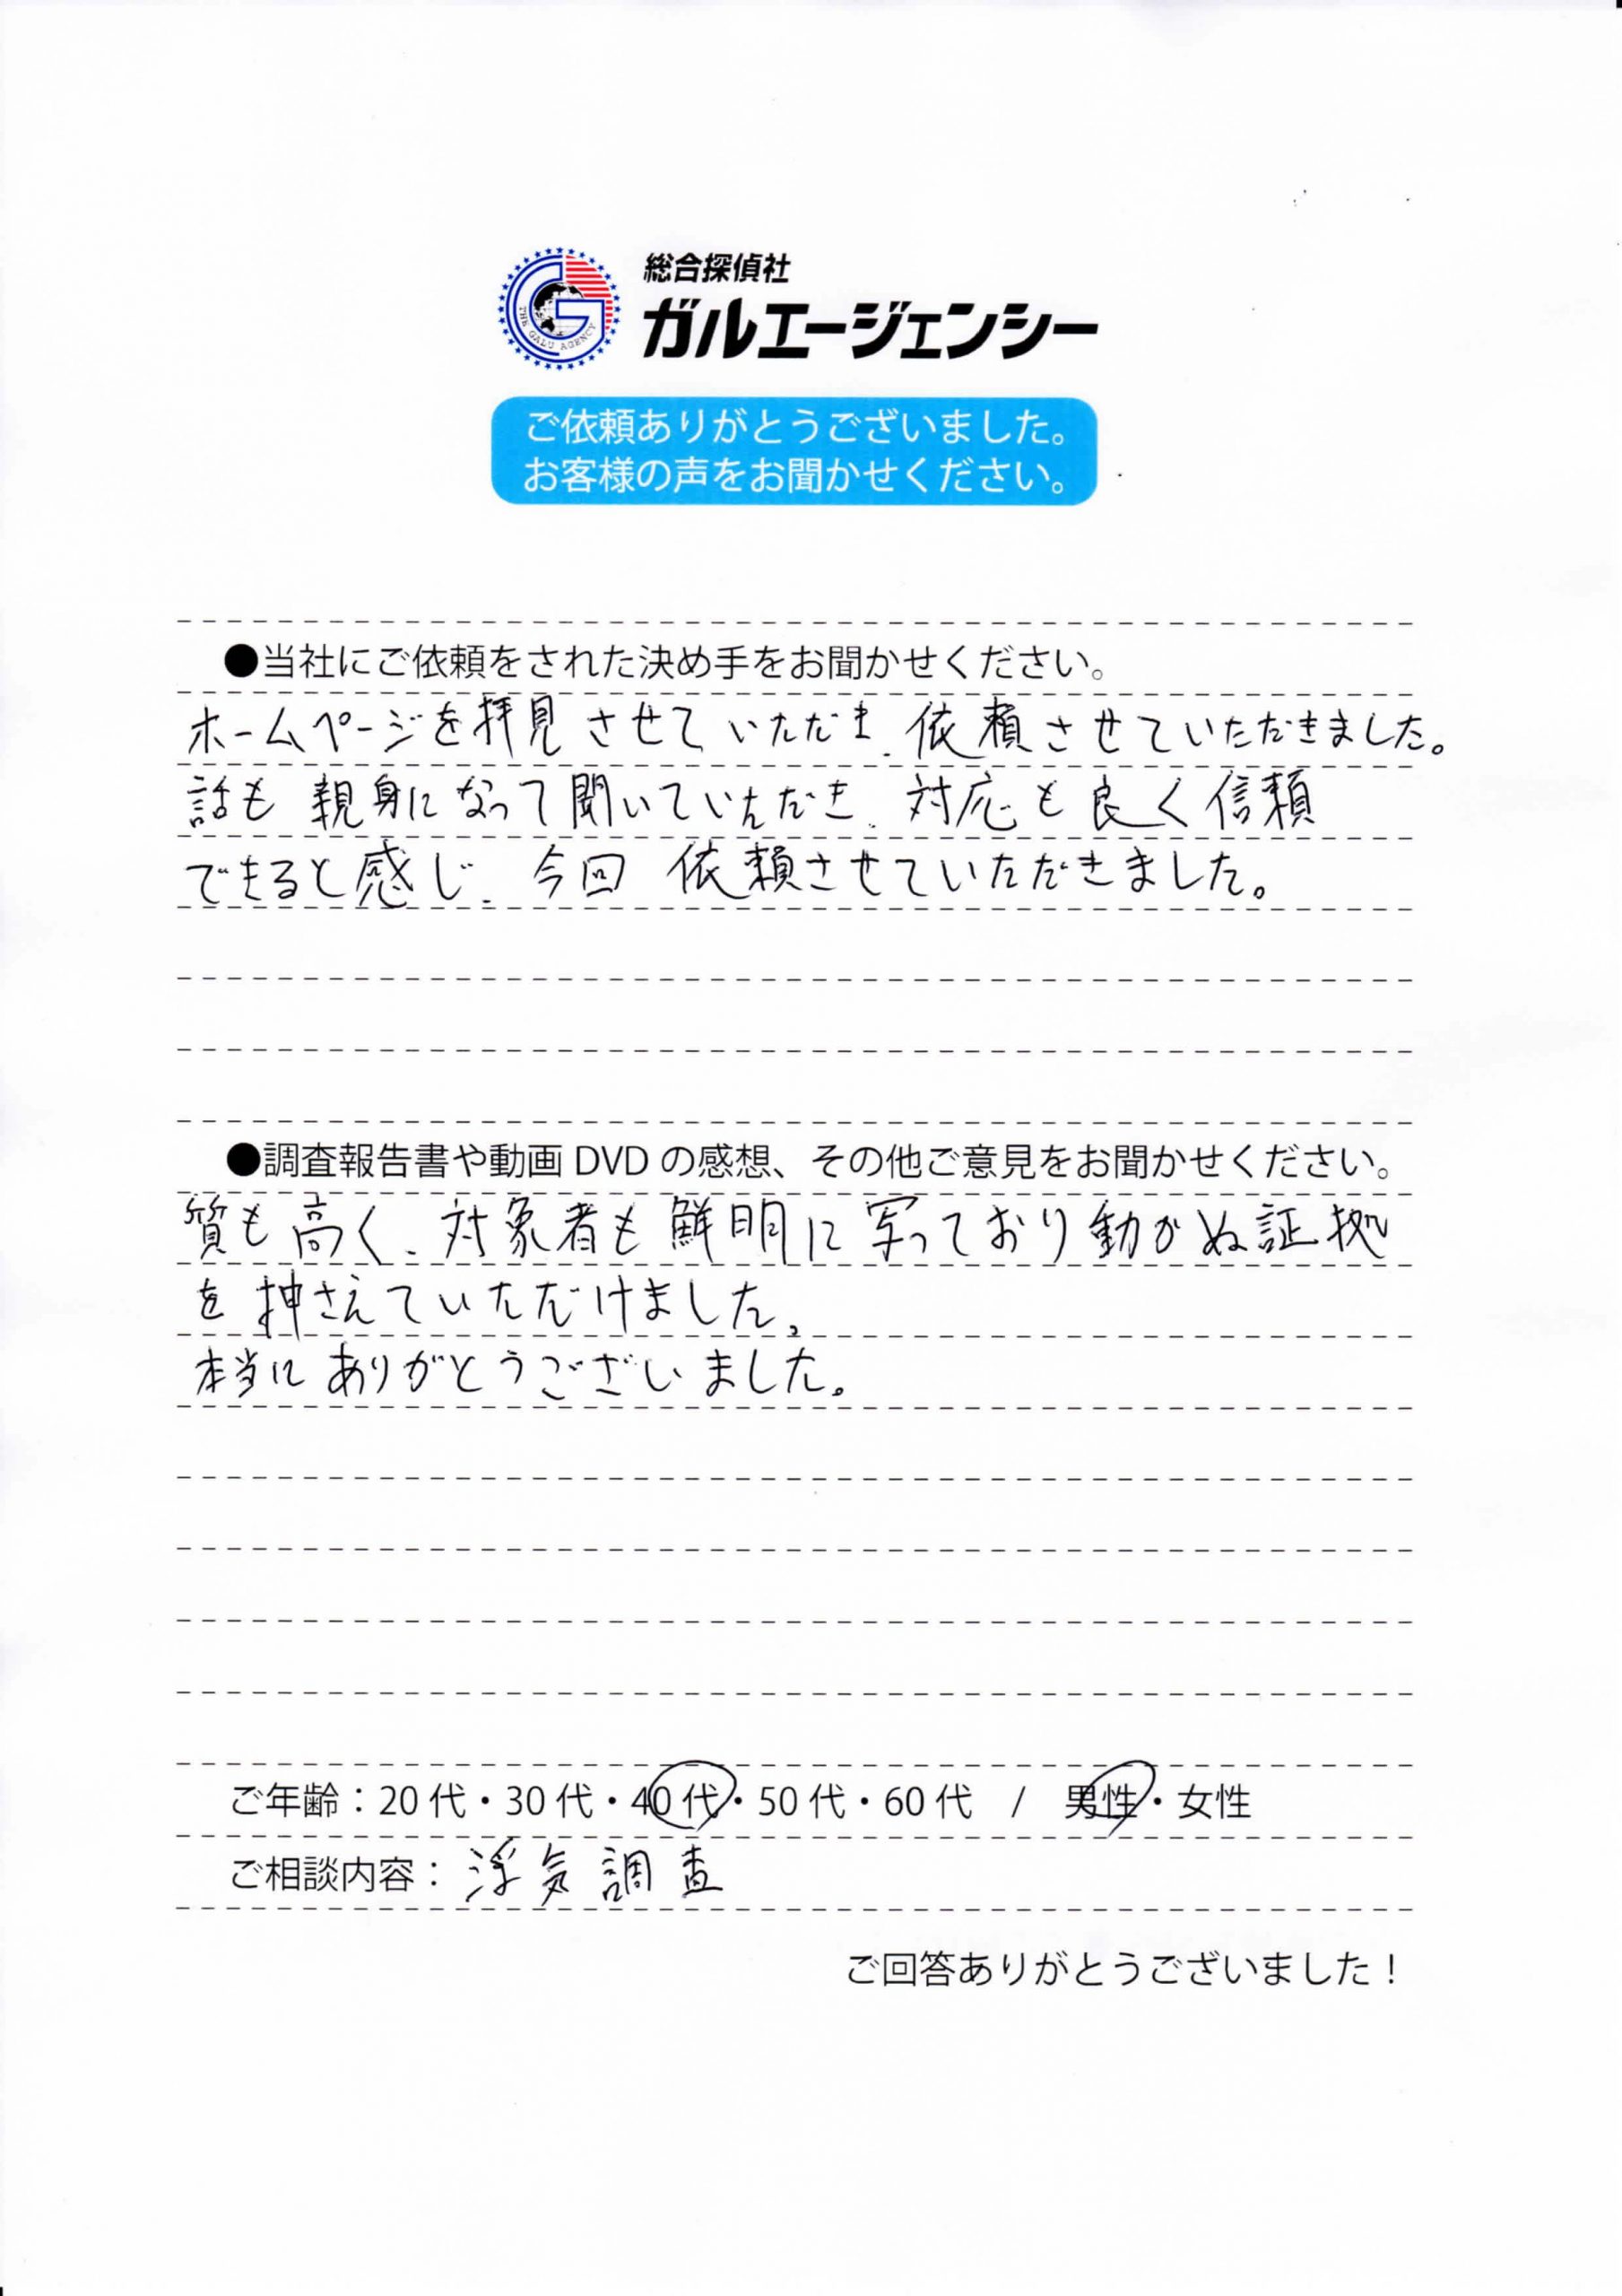 総合探偵社
ガルエージェンシー
THE GALU AGENCY
ご依頼ありがとうございました。
お客様の声をお聞かせください。
●当社にご依頼をされた決め手をお聞かせください。
ホームページを拝見させていただき、依頼させていただきました。
話も親身になって聞いていただき、対応も良く信頼
できると感じ、今回依頼させていただきました。
●調査報告書や動画 DVD の感想、その他ご意見をお聞かせください。
質も高く、対象者も鮮明に写っており動かぬ証拠
を押さえていただけました。
本当にありがとうございました。
ご年齢：20 代・30 代・40 代・50 代・60 代 / 男性・女性
ご相談内容：浮気調査
ご回答ありがとうございました！